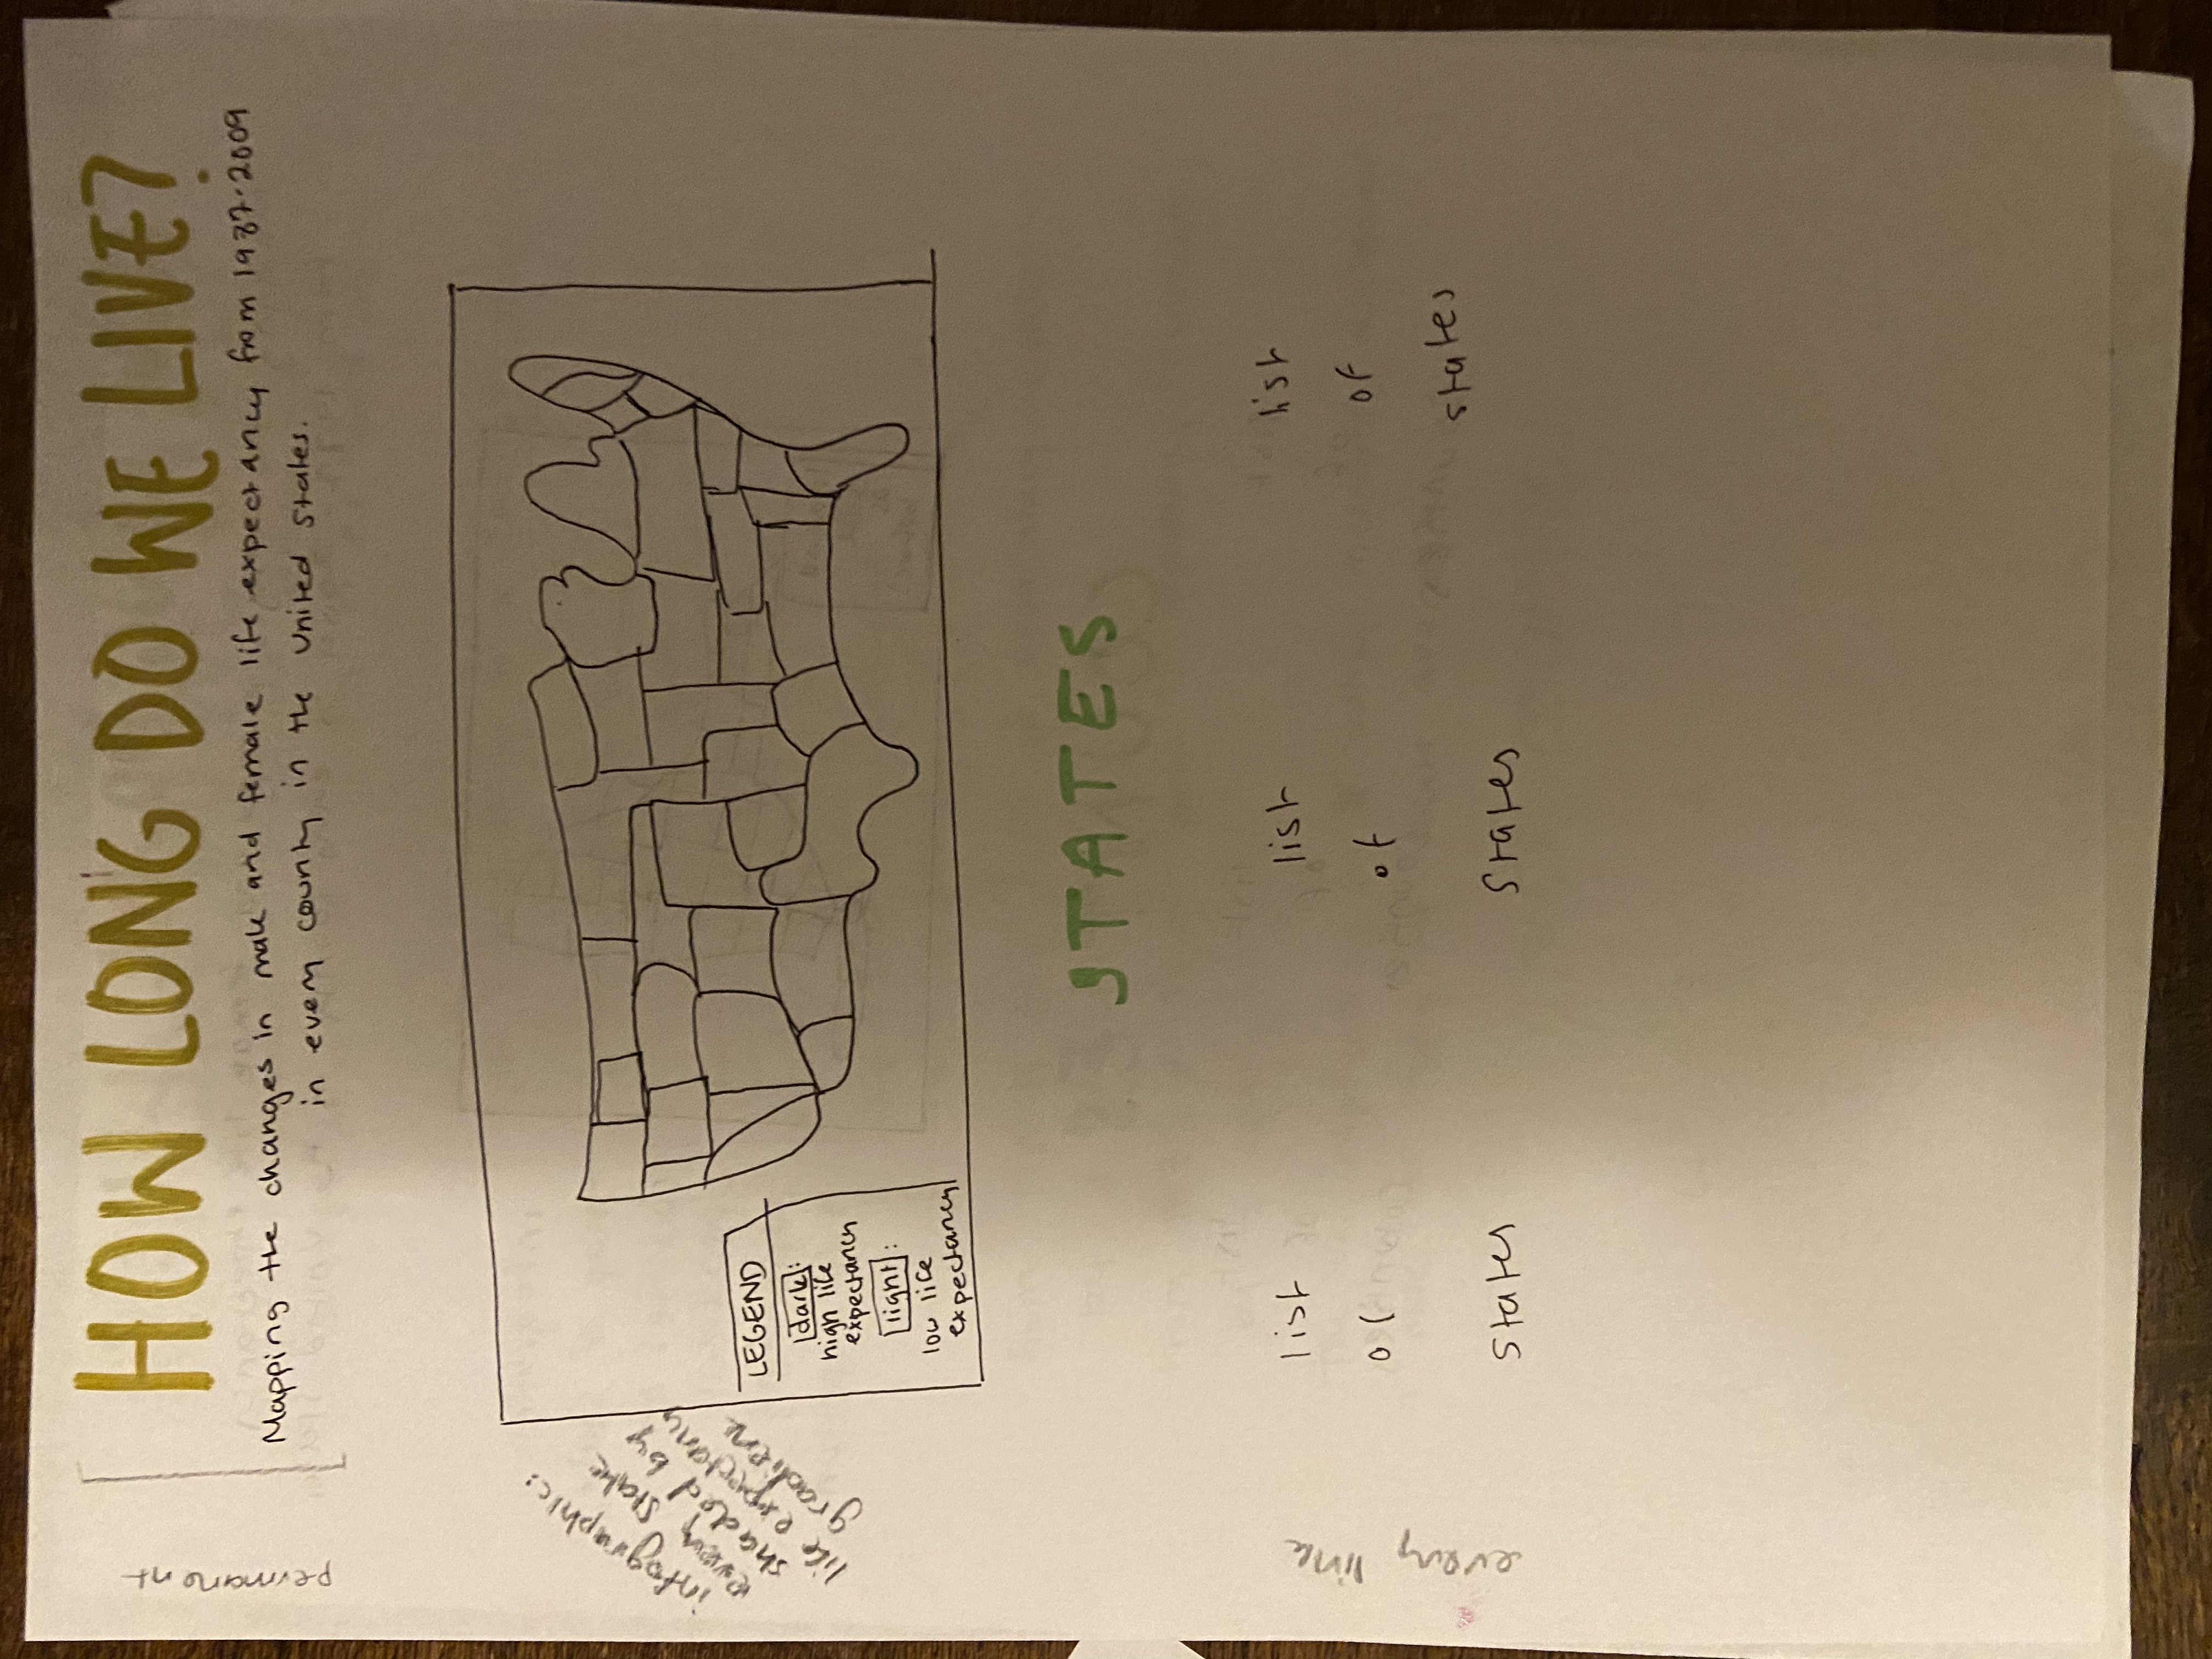 HOW LONG DO WE LIVE?
Mapping the changes in male and female life expectancy from 1987-2009
in every county in the United States.
permanent
infographic:
every state
shaded by
life expectancy
gradient
LEGEND
dark:
high life
expectancy
light:
low life
expectancy
STATES
every link
list
of
states
list
of
states
list
of
states